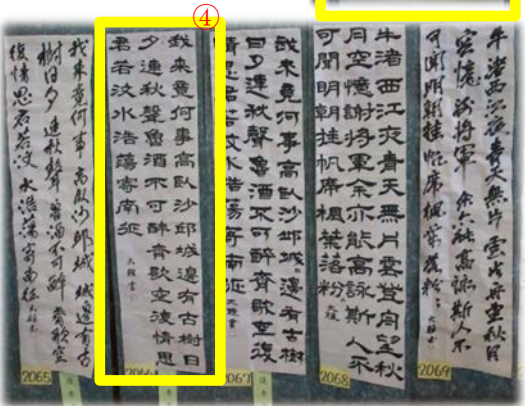 ④
我來竟何事高臥沙邱城城邊有古
樹日夕連秋聲魯酒不可醉齊歌空
復情思君若汶水浩蕩寄南征
2065
我來竟何事高臥沙邱城邊有古樹日
夕連秋聲魯酒不可醉齊歌空復情思
君若汶水浩蕩寄南征
2066
我來竟何事高臥沙邱城邊有古樹
日夕連秋聲魯酒不可醉齊歌空復
情思君若汶水浩蕩寄南征
2067
牛渚西江夜青天無片雲登舟望秋
月空憶謝將軍余亦能高詠斯人不
可聞明朝挂帆席楓葉落紛
2068
牛渚西江夜青天無片雲登舟望秋月
空憶謝將軍余亦能高詠斯人不
可聞明朝挂帆席楓葉落紛
2069